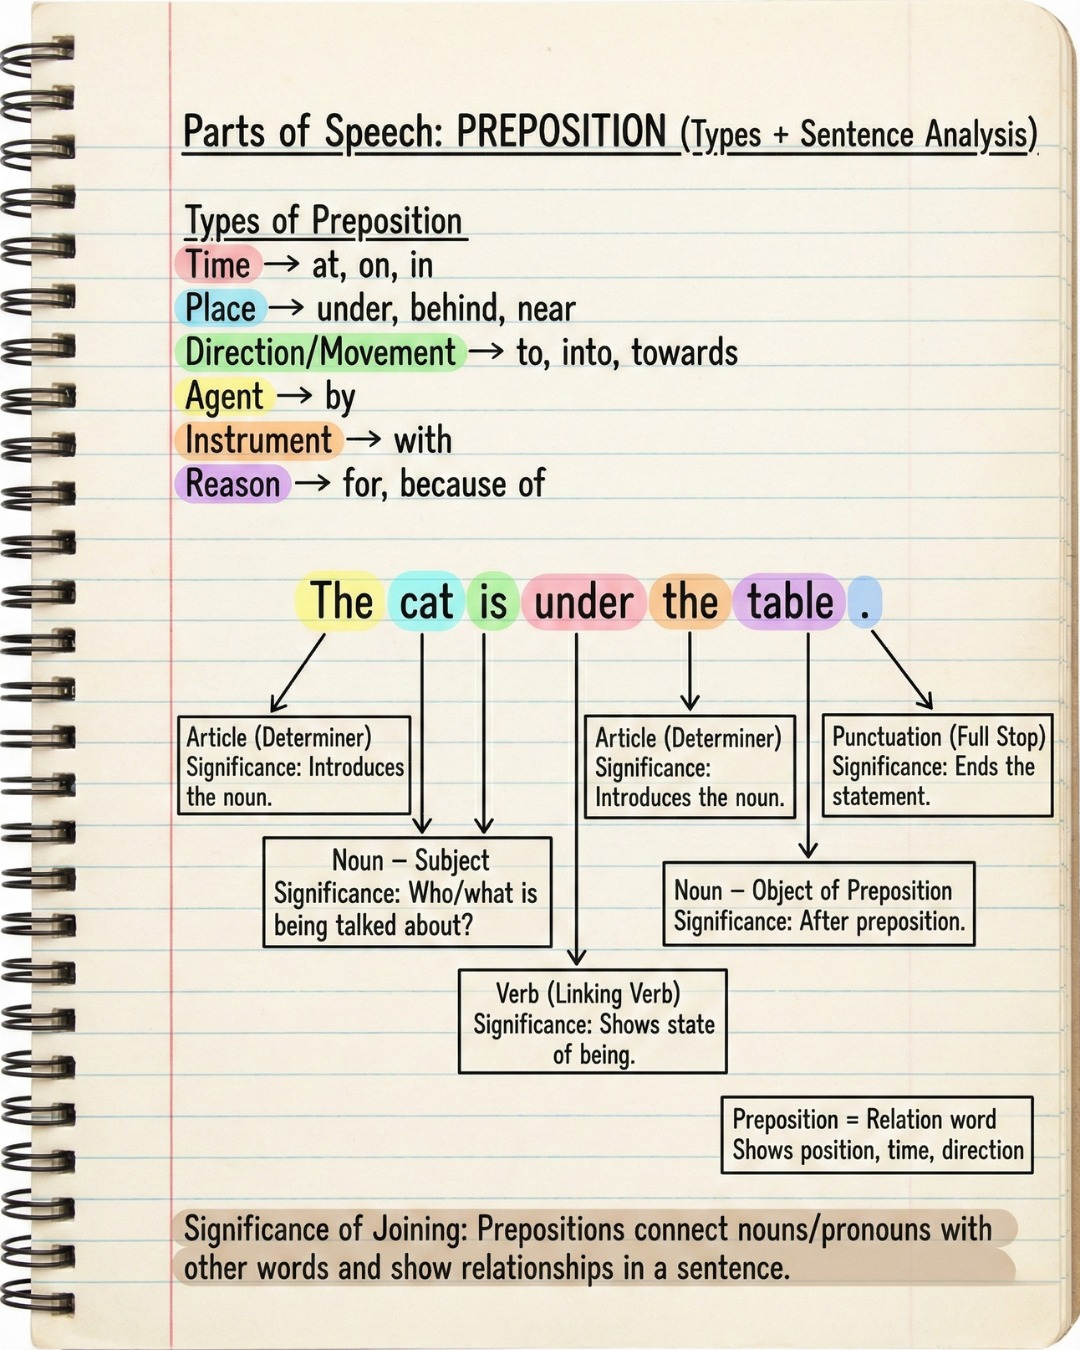 Parts of Speech: PREPOSITION (Types + Sentence Analysis)
Types of Preposition
Time → at, on, in
Place → under, behind, near
Direction/Movement → to, into, towards
Agent → by
Instrument → with
Reason → for, because of
The cat is under the table .
Article (Determiner)
Significance: Introduces
the noun.
Article (Determiner)
Significance:
Introduces the noun.
Punctuation (Full Stop)
Significance: Ends the
statement.
Noun – Subject
Significance: Who/what is
being talked about?
Noun – Object of Preposition
Significance: After preposition.
Verb (Linking Verb)
Significance: Shows state
of being.
Preposition = Relation word
Shows position, time, direction
Significance of Joining: Prepositions connect nouns/pronouns with
other words and show relationships in a sentence.